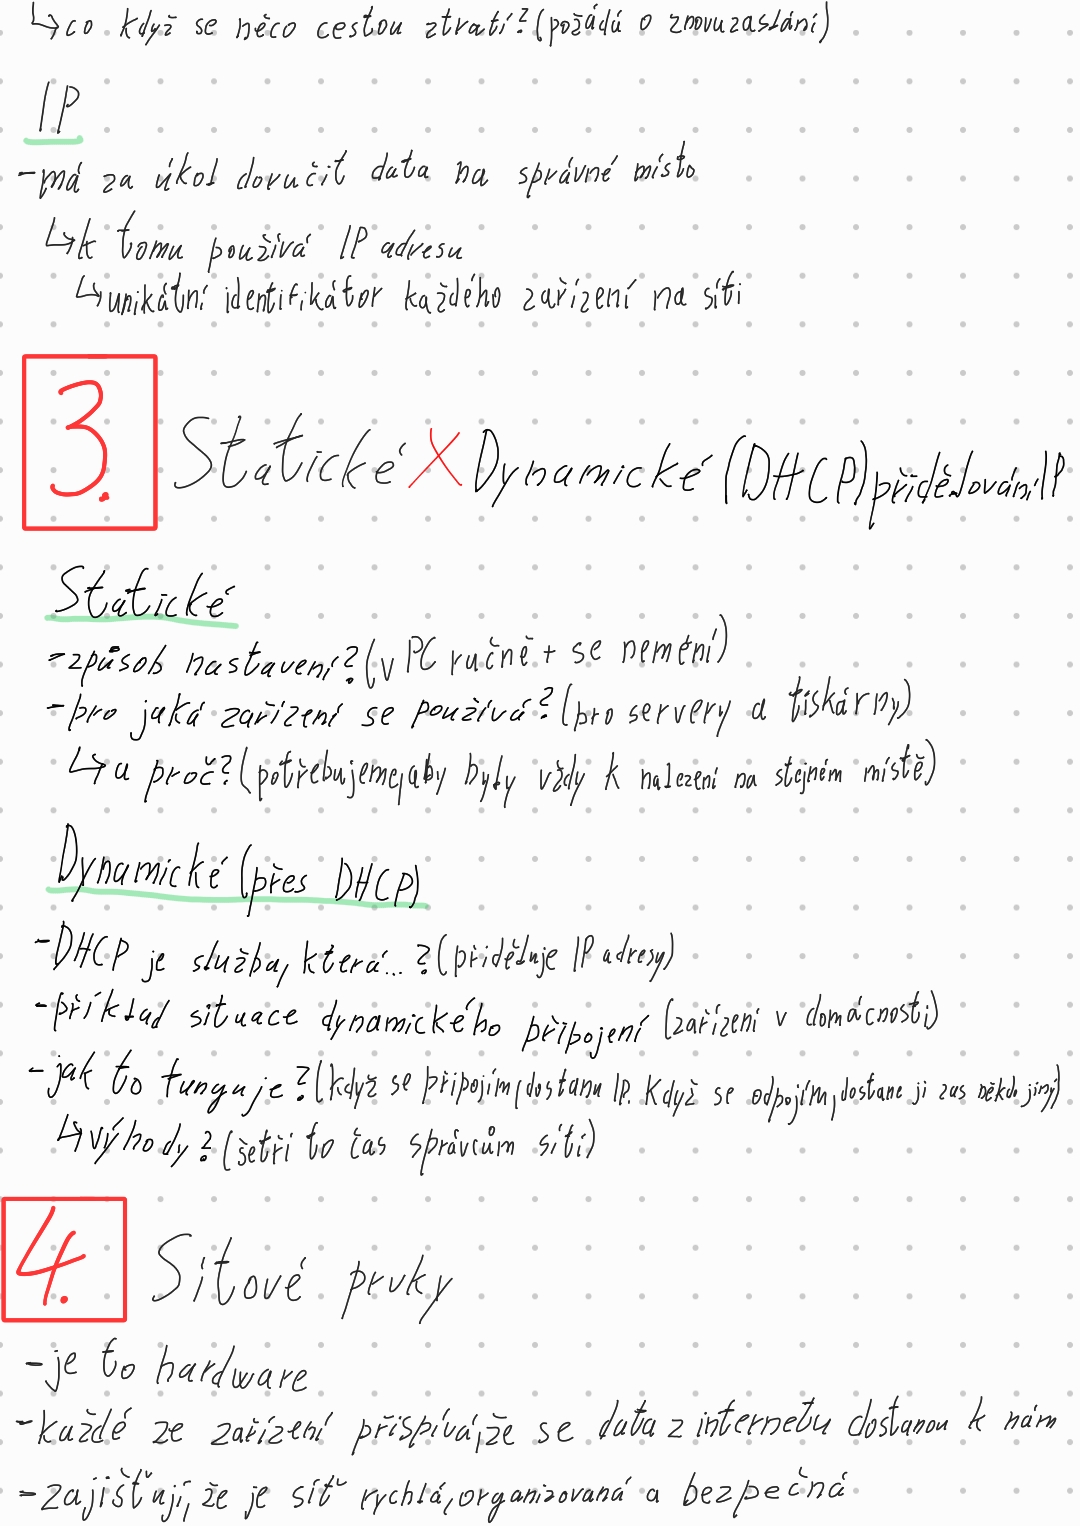 ↳co když se něco cestou ztratí? (požádá o znovuzaslání)
IP
-má za úkol doručit data na správné místo
↳k tomu používá IP adresu
↳unikátní identifikátor každého zařízení na síti
3. Statické X Dynamické (DHCP) přidělování IP
Statické
-způsob nastavení? (v PC ručně + se nemění)
-pro jaká zařízení se používá? (pro servery a tiskárny)
↳a proč? (potřebujeme, aby byly vždy k nalezení na stejném místě)
Dynamické (přes DHCP)
-DHCP je služba, která...? (přiděluje IP adresy)
-příklad situace dynamického připojení (zařízení v domácnosti)
-jak to funguje? (když se připojím, dostanu IP. Když se odpojím, dostane ji zas někdo jiný)
↳výhody? (šetří to čas správcům sítí)
4. Síťové prvky
-je to hardware
-každé ze zařízení přispívá, že se data z internetu dostanou k nám
-zajišťují, že je síť rychlá, organizovaná a bezpečná